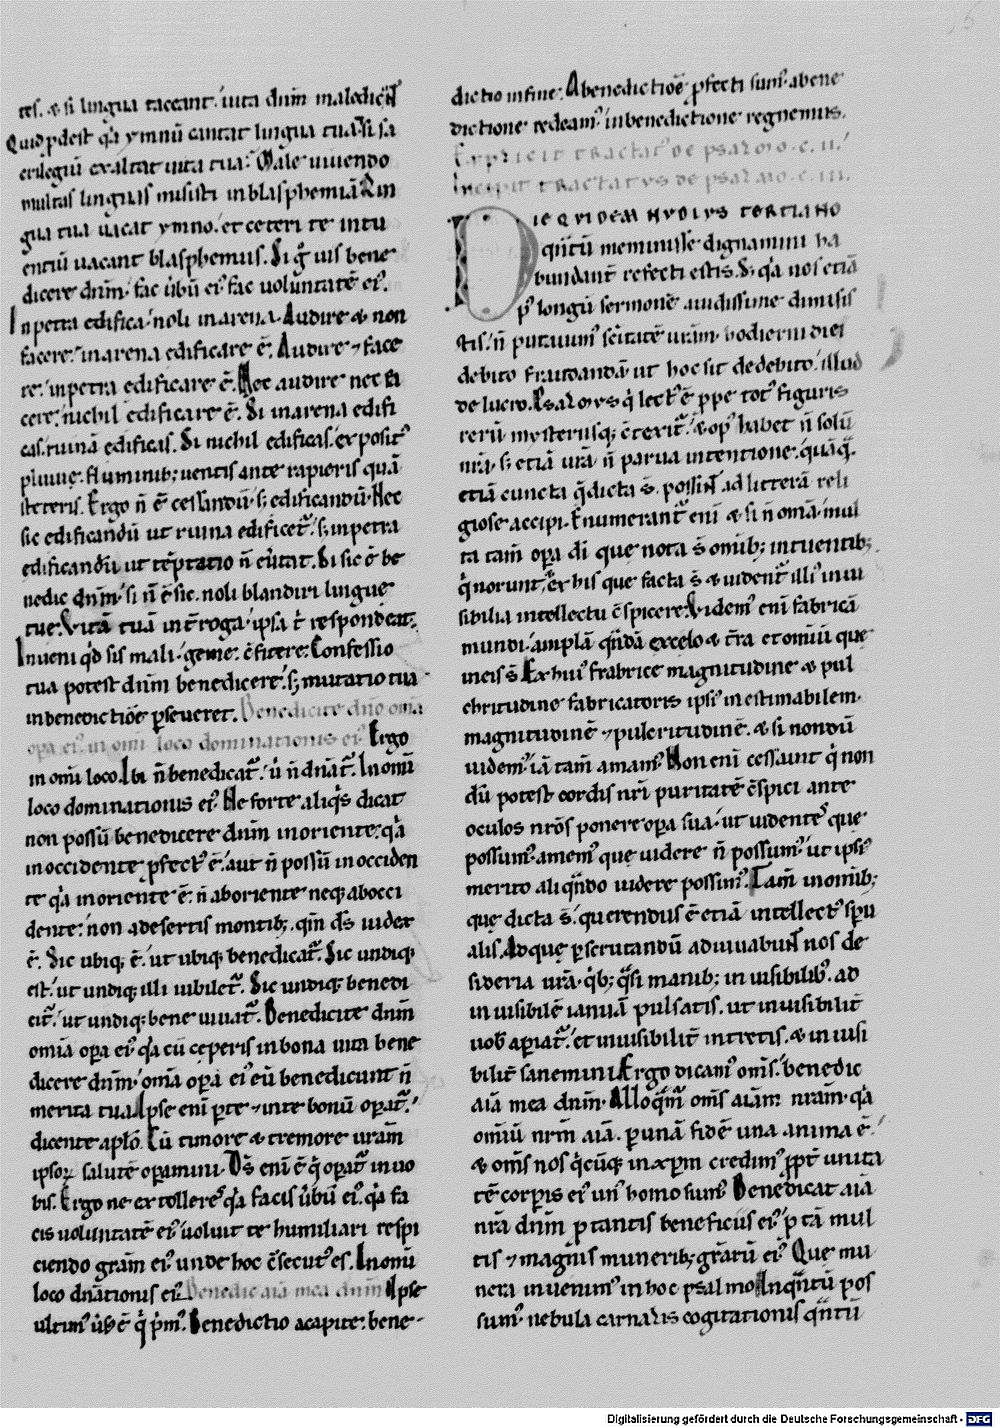 tes. & si lingua taceant. uita dn̄m maledicit
Quid p̱dest q̇a ymnū cantat lingua tua. si sa
crilegiū exaltat uita tua. Male uiuendo
multas linguas misisti in blasphemiā. Lin
gua tua uacat ymno. et ceteri te intu
entiū uacant blasphemiis. Si g̊ uis bene
dicere dn̄m. fac úbū ei᾽. fac voluntatē ei᾽.
In petra edifica. noli in arena. Audire & non
facere. in arena edificare ē. Audire ⁊ face
re. in petra edificare ē. Nec audire nec fa
cere. nichil edificare ē. Si in arena edifi
cas. ruinā edificas. Si nichil edificas. exposit᾽
pluuiȩ. fluminib; uentis ante rapieris quā
steteris. Ergo n̄ ē cessandū. s; edificandū. Nec
sic edificandū ut ruina edificet᷑. s; in petra
edificandū ut tēptatio n̄ eútat. Si sic ē be
nedic dn̄m. si n̄ ē sic. noli blandiri linguȩ
tuȩ. Vitā tuā int̄roga. ipsa t̄ respondeat.
Inueni qd̄ sis mali. geme. c̄fitere. Confessio
tua potest dn̄m benedicere. s; mutatio tua
in benedictiōe p̱seueret. Benedicite dn̄o om̄a
opa ei᾽. in om̄i loco dominationis ei᾽. Ergo
in om̄i loco. Ibi n̄ benedicat᷑. ú n̄ dn̄at᷑. In om̄i
loco dominationis ei᾽. Ne forte aliq̇s dicat
non possū benedicere dn̄m in oriente. q̇a
in occidente p̱fect᾽ ē. aut n̄ possū in occiden
te q̇a in oriente ē. n̄ ab oriente neq; ab occi
dente. non a desertis montib;. qm̄ d̄s iudex
ē. Sic ubiq; ē. ut ubiq; benedicat᷑. Sic undiq;
est. ut undiq; illi iubilet᷑. Sic undiq; benedi
cit᷑. ut undiq; bene uiuat᷑. Benedicite dn̄m
om̄ia opa ei᾽. q̇a cū ceperis in bona uita bene
dicere dn̄m. om̄a opa ei᾽ eū benedicunt n̄
merita tua. Ipse eni p̱ te ⁊ in te bonū opat᷑.
dicente aplo. Cū timore & tremore uram
ipsoꝝ salutē opamini. D̄s eni ē q̇ opat᷑ in uo
bis. Ergo ne extollere᾽ q̇a facis úbū ei᾽. q̇a fa
cis uoluntatē ei᾽. uoluit te humiliari respi
ciendo gram ei᾽. unde hoc c̄secut᾽ es. In om̄i
loco dn̄ationis ei᾽. Benedic aīa mea dn̄m. Ipse
ultim᾽ úsꝰ ē q̇ p̄m᾽. Benedictio a capite. bene-
dictio in fine. A benedictiōe p̱fecti sum᾽. a bene
dictione redeam᾽. in benedictione regnemus.
Explicit tractat᾽ de psalmo .c.ii.
Incipit tractatus de psalmo .c.iii.
DIE QUIDEM HUDIUS TERTIANO
qn̄tū meminisse dignamini ha
bundant̄ refecti estis. S; q̇a nos etiā
p᾽ longū sermonē auidissime dimisis
tis. n̄ putauim᾽ sc̄itatē uram. hodierni diei
debito fraudandā. ut hoc sit de debito. illud
de lucro. Psalmus q̇ lect᾽ ē p̱pe tot᾽ figuris
rerū mysteriisq; c̄texit᷑. & op᾽ habet n̄ solū
nrā. s; etiā urā n̄ parua intentione. quāq̄.
etiā cuncta q̄ dicta s̄. possint ad litterā reli
giose accipi. Enumerant᷑ eni & si n̄ om̄a. mul
ta tam̄ opa di quȩ nota s̄ om̄ib; intuentib;
q̇ norunt. ex his quȩ facta s̄ & uident᷑ illi᾽ inui
sibilia intellectu c̄spicere. Videm᾽ eni fabricā
mundi. amplā q̄ndā ex celo & t̄ra et om̄iū quȩ
in eis s̄. Ex hui᾽ frabricȩ magnitudine & pul
chritudine fabricatoris ipsi᾽ inestimabilem
magnitudinē ⁊ pulcritudinē. & si nondū
uidem᾽. iā tam̄ amam᾽. Non eni cessauit q̇ non
dū potest cordis nr̄i puritatē c̄spici ante
oculos nr̄os ponere opa sua. ut uidente᾽ quȩ
possum᾽. amem᾽ quȩ uidere n̄ possum᾽. ut ipsi᾽
merito aliqn̄do uidere possim᾽. Tam̄ in om̄ib;
quȩ dicta s̄. querendus ē etiā intellect᾽ spū
alis. Ad quȩ p̱scrutandū adiuuabunt nos de
sideria urā. q̇b; q̇si manib; inuisibilib᾽. ad
inuisibilē ianuā pulsatis. ut inuisibilit̄
uob̄ apiat᷑. et inuisibilit̄ intretis. & inuisi
bilit̄ sanemini. Ergo dicam᾽ om̄s. benedic
aīa mea dn̄m. Alloqm̄ om̄s aīam nram. q̇a
om̄iū nrm̄ aīā. p̱ unā fidē una anima ē.
& om̄s nos q̇cūq; in xp̄m credim᾽. ppt̄ unita
tē corpis ei᾽ un᾽ homo sum᾽. Benedicat aīā
nrā dn̄m p̱ tantis beneficiis ei᾽. p̱ tā mul
tis ⁊ magnis munerib; gratiȩ ei᾽. Quȩ mu
nera inuenim᾽ in hoc psalmo. In qn̄tū pos
sum᾽ nebula carnalis cogitationis qn̄tū
Digitalisierung gefördert durch die Deutsche Forschungsgemeinschaft - DFG